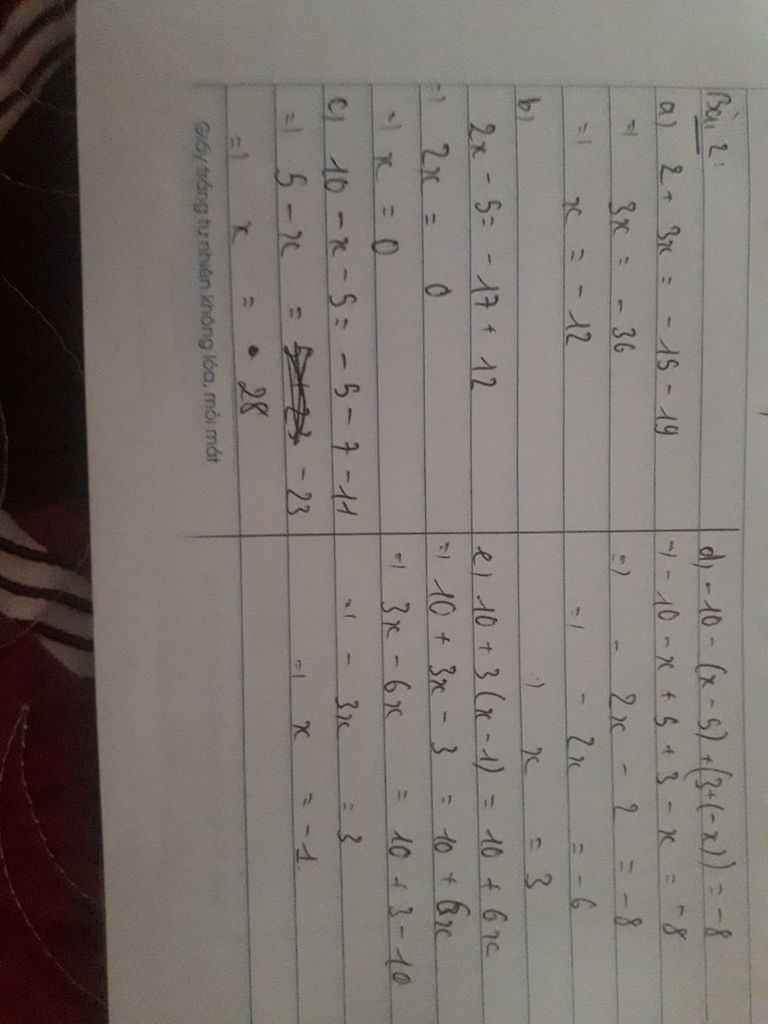 Bài 2:
a) 2 + 3x = - 15 - 19
=) 3x = - 36
=) x = - 12
b)
2x - 5 = - 17 + 12
=) 2x = 0
=) x = 0
c) 10 - x - 5 = - 5 - 7 - 11
=) 5 - x = - 23
=) x = 28
d) - 10 - (x - 5) + (3 + (- x)) = - 8
=) - 10 - x + 5 + 3 - x = - 8
=) - 2x - 2 = - 8
=) - 2x = - 6
=) x = 3
e) 10 + 3 (x - 1) = 10 + 6x
=) 10 + 3x - 3 = 10 + 6x
=) 3x - 6x = 10 + 3 - 10
=) - 3x = 3
=) x = - 1
Giấy trắng tự nhiên không lóa, mỏi mắt